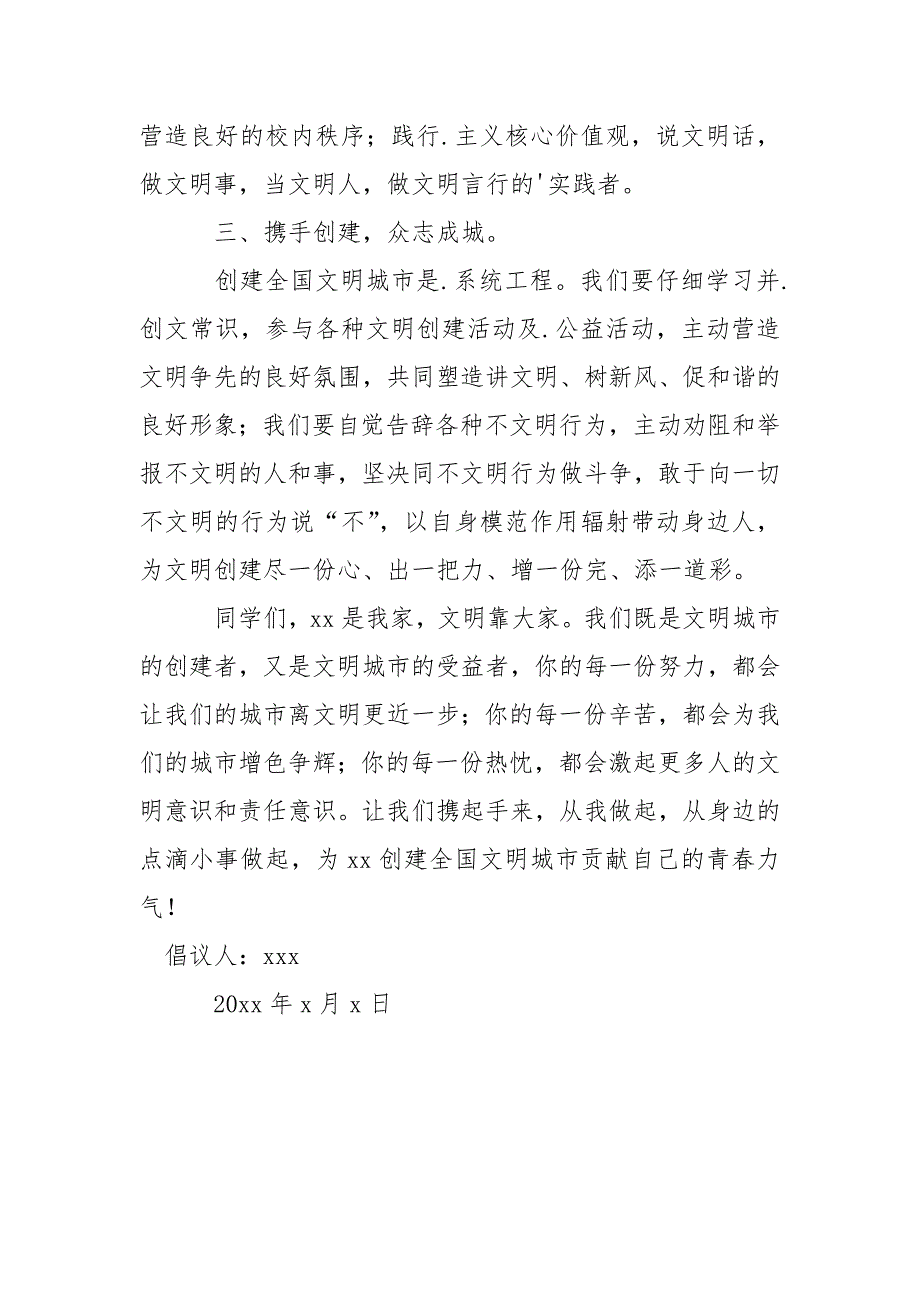 营造良好的校内秩序；践行.主义核心价值观，说文明话，
做文明事，当文明人，做文明言行的'实践者。
三、携手创建，众志成城。
创建全国文明城市是.系统工程。我们要仔细学习并.
创文常识，参与各种文明创建活动及.公益活动，主动营造
文明争先的良好氛围，共同塑造讲文明、树新风、促和谐的
良好形象；我们要自觉告辞各种不文明行为，主动劝阻和举
报不文明的人和事，坚决同不文明行为做斗争，敢于向一切
不文明的行为说“不”，以自身模范作用辐射带动身边人，
为文明创建尽一份心、出一把力、增一份完、添一道彩。
同学们，xx 是我家，文明靠大家。我们既是文明城市
的创建者，又是文明城市的受益者，你的每一份努力，都会
让我们的城市离文明更近一步；你的每一份辛苦，都会为我
们的城市增色争辉；你的每一份热忱，都会激起更多人的文
明意识和责任意识。让我们携起手来，从我做起，从身边的
点滴小事做起，为 xx 创建全国文明城市贡献自己的青春力
气！
倡议人：xxx
20xx 年 x 月 x 日